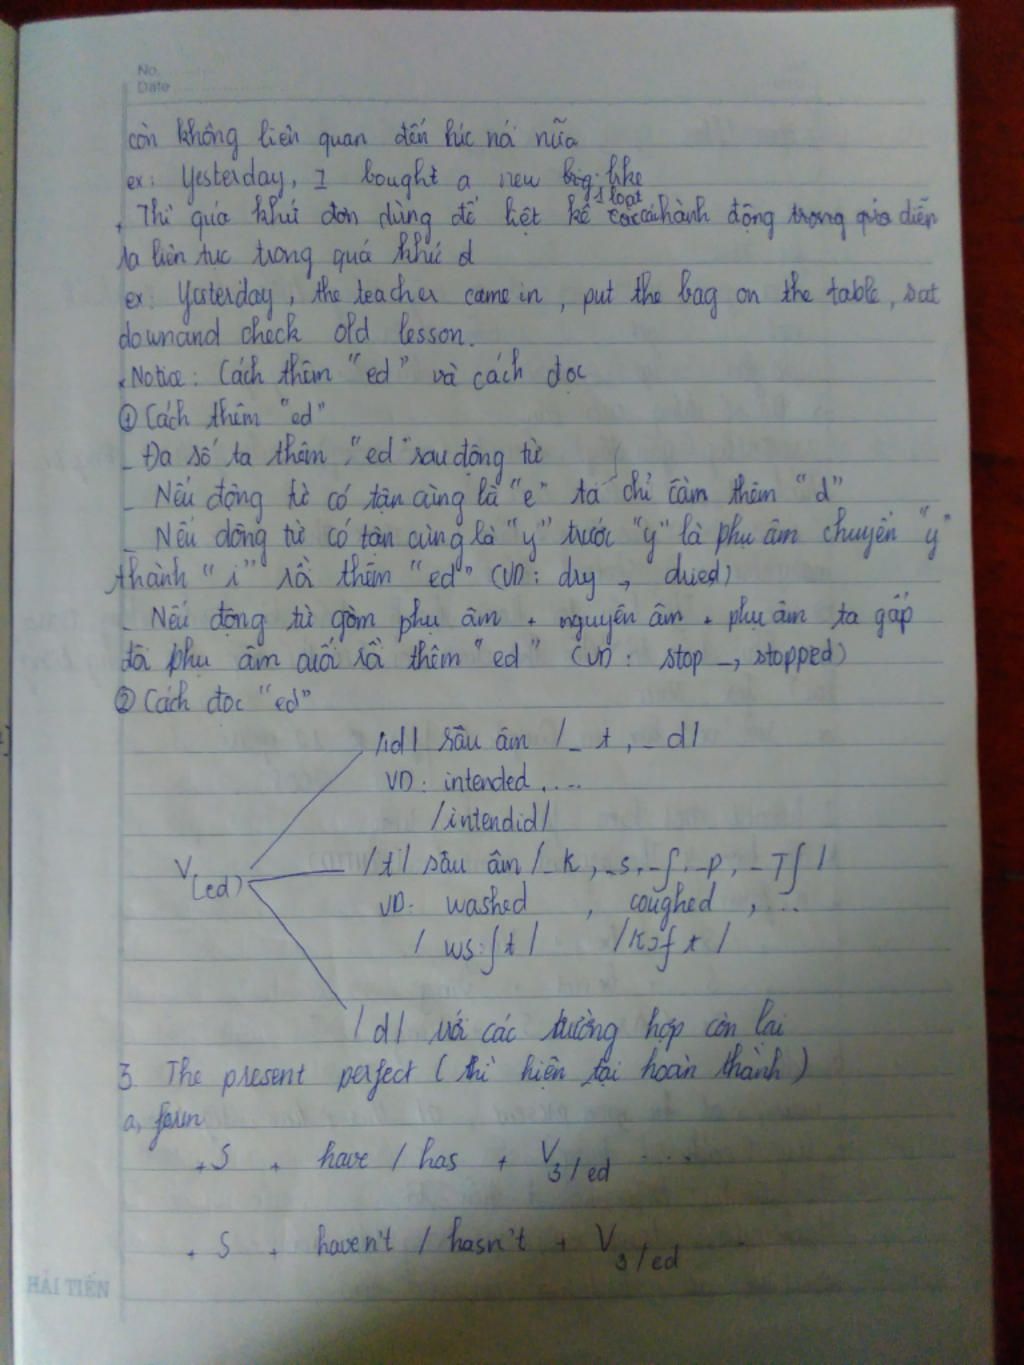 No.
Date
còn không liên quan đến lúc nói nữa
ex: Yesterday, I bought a new bike
+ Thì quá khứ đơn dùng để liệt kê 1 loạt các hành động trong quá diễn
ra liên tục trong quá khứ
ex: Yesterday, the teacher came in, put the bag on the table, sat
down and check old lesson.
* Notice: Cách thêm "ed" và cách đọc
① Cách thêm "ed"
- Đa số ta thêm "ed" sau động từ
- Nếu động từ có tận cùng là "e" ta chỉ cầm thêm "d"
- Nếu động từ có tận cùng là "y" trước "y" là phụ âm chuyển "y"
thành "i" rồi thêm "ed" (VD: dry → dried)
- Nếu động từ gồm phụ âm + nguyên âm + phụ âm ta gấp
đôi phụ âm cuối rồi thêm "ed" (VD: stop → stopped)
② Cách đọc "ed"
/id/ sau âm /_ t, _ d/
VD: intended, ...
/intendid/
V(ed) /t/ sau âm /_ k, _ s, _ ʃ, _ p, _ Tʃ /
VD: washed , coughed , ...
/ ws:ʃt / /kɔf t /
/d/ với các trường hợp còn lại
3. The present perfect (thì hiện tại hoàn thành)
a, form
+ S + have / has + V3/ed ...
+ S + haven't / hasn't + V3/ed
HẢI TIẾN